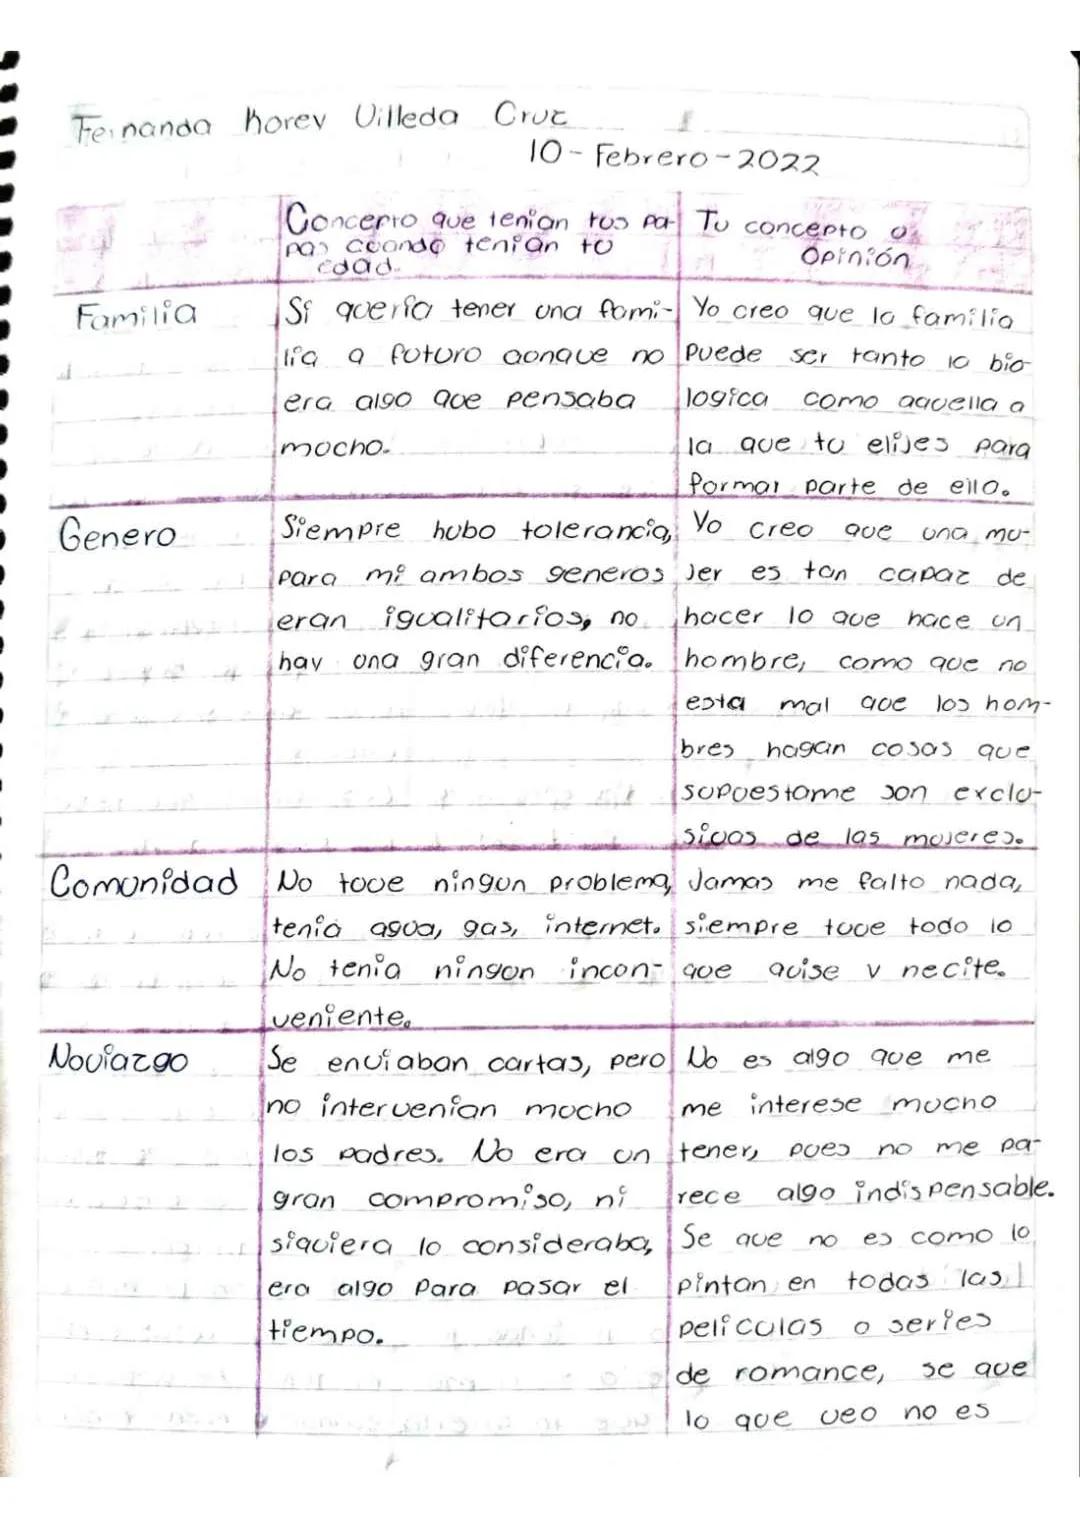 Fernanda Korey Villeda Cruz
10-Febrero-2022
Concepto que tenian tus pa-
pas cuando tenían tu
edad.
Tu concepto o
Opinión
Familia
Sí quería tener una fami-
lia a futuro aunque no
era algo que pensaba
mucho.
Yo creo que la familia
puede ser tanto lo bio-
logica como aquella a
la que tu elijes para
formar parte de ella.
Genero
Siempre hubo tolerancia,
para mi ambos generos
eran igualitarios, no
hay una gran diferencia.
Yo creo que una mu-
jer es tan capaz de
hacer lo que hace un
hombre, como que no
esta mal que los hom-
bres hagan cosas que
supuestame son exclu-
sivas de las mujeres.
Comunidad
No tuve ningun problema,
tenia agua, gas, internet.
No tenia ningun incon-
veniente.
Jamas me falto nada,
siempre tuve todo lo
que quise y necite.
Noviazgo
Se enviaban cartas, pero
no intervenían mucho
los padres. No era un
gran compromiso, ni
siquiera lo consideraba,
era algo para pasar el
tiempo.
No es algo que me
me interese mucho
tener, pues no me pa-
rece algo indispensable.
Se que no es como lo
pintan en todas las
peliculas o series
de romance, se que
lo que veo no es